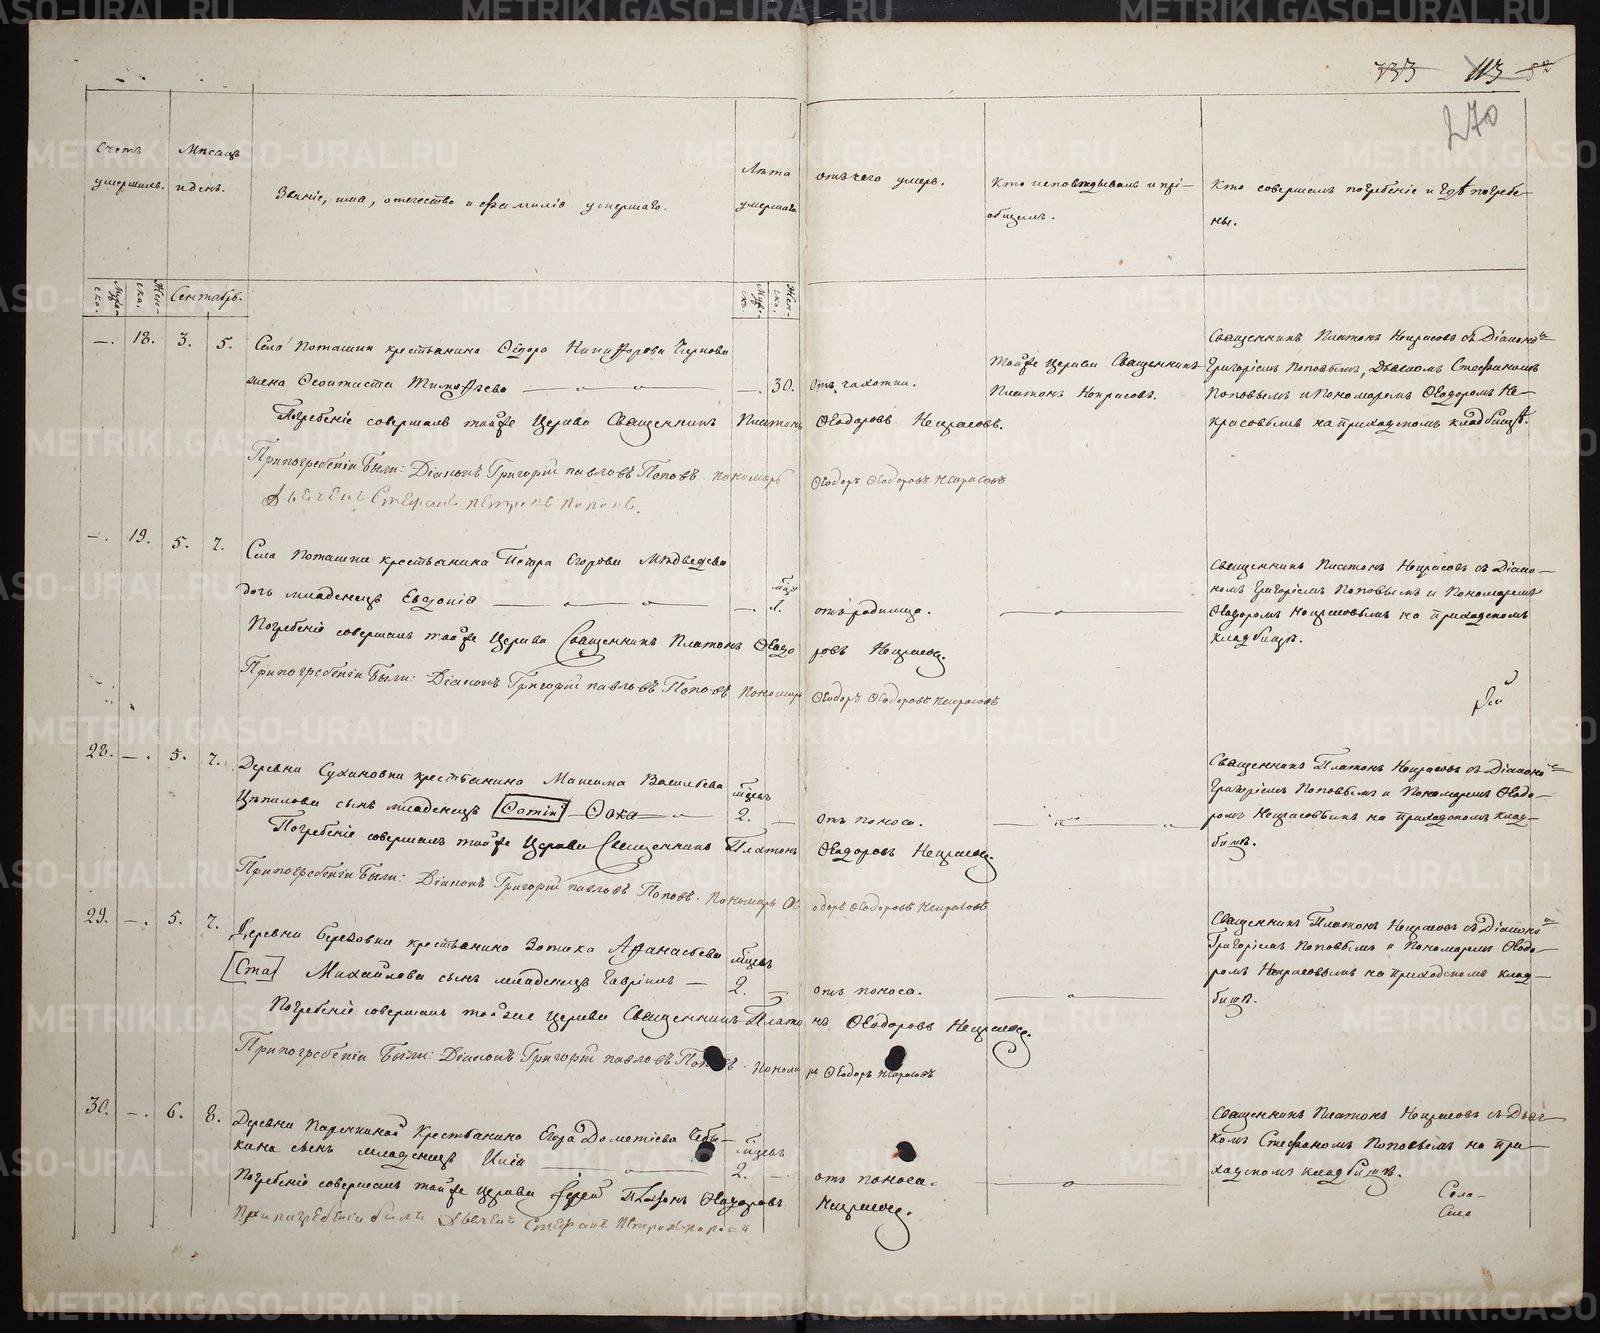 113
270
Счетъ умершихъ.
Мѣсяцъ и день.
Званіе, имя, отечество и фамилія умершаго.
Лѣта умершаго
отъ чего умеръ.
Кто исповѣдывалъ и прі-
общилъ.
Кто совершалъ погребеніе и гдѣ погребе-
ны.
Муже-
ска.
Жен-
ска.
Сентябрь.
Муже-
ск.
Жен-
ска.
—. 18. 3. 5. Села Поташки крестьянина Ѳедора Никифорова
жена Ѳеоктиста Тимоѳѣева — 30. отъ чахотки.
Тойже Церкви Священникъ
Платонъ Некрасовъ.
Священникъ Платонъ Некрасовъ съ Діакономъ
Григоріемъ Поповымъ, Дьячкомъ Стефаномъ
Поповымъ и Пономаремъ Ѳеодоромъ Не-
красовымъ на приходскомъ кладбищѣ.
Погребеніе совершалъ тойже Церкви Священникъ Платонъ Ѳеодоровъ Некрасовъ.
При погребеніи были: Діаконъ Григорій Павловъ Поповъ. Пономарь Ѳеодоръ Ѳеодоровъ Некрасовъ
Дьячекъ Стефанъ Петровъ Поповъ.
—. 19. 5. 7. Села Поташки крестьянина Петра Егорова Медведева
дочь младенецъ Евдокія — 1. отъ родимца.
Священникъ Платонъ Некрасовъ съ Діако-
номъ Григоріемъ Поповымъ и Пономаремъ
Ѳеодоромъ Некрасовымъ на приходскомъ
кладбищѣ.
Погребеніе совершалъ тойже Церкви Священникъ Платонъ Ѳеодоровъ Некрасовъ.
При погребеніи были: Діаконъ Григорій Павловъ Поповъ Пономарь Ѳеодоръ Ѳеодоровъ Некрасовъ
28. —. 5. 7. Деревни Сухановки крестьянина Максима Васильева
сынъ младенецъ [Фотій] Ѳока — мѣсцъ 2. — отъ поноса.
Священникъ Платонъ Некрасовъ съ Діакономъ
Григоріемъ Поповымъ и Пономаремъ Ѳеодо-
ромъ Некрасовымъ на приходскомъ клад-
бищѣ.
Погребеніе совершалъ тойже Церкви Священникъ Платонъ Ѳеодоровъ Некрасовъ.
При погребеніи были: Діаконъ Григорій Павловъ Поповъ. Пономарь Ѳеодоръ Ѳеодоровъ Некрасовъ
29. —. 5. 7. Деревни Березовки крестьянина Зотика Аѳанасьева
[Ста] Михайлова сынъ младенецъ Гавріилъ — мѣсцъ 2. — отъ поноса.
Священникъ Платонъ Некрасовъ съ Діакономъ
Григоріемъ Поповымъ и Пономаремъ Ѳеодо-
ромъ Некрасовымъ на приходскомъ клад-
бищѣ.
Погребеніе совершалъ тойже Церкви Священникъ Платонъ Ѳеодоровъ Некрасовъ.
При погребеніи были: Діаконъ Григорій Павловъ Поповъ. Пономарь Ѳеодоръ Некрасовъ
30. —. 6. 8. Деревни крестьянина Егора Дометіева
сынъ младенецъ — мѣсцъ 2. — отъ поноса.
Священникъ Платонъ Некрасовъ съ Дьяч-
комъ Стефаномъ Поповымъ на при-
ходскомъ кладбищѣ.
Погребеніе совершалъ тойже Церкви Іерей Платонъ Ѳеодоровъ Некрасовъ.
При погребеніи былъ Дьячекъ Стефанъ Петровъ Поповъ
Села
METRIKI.GASO-URAL.RU